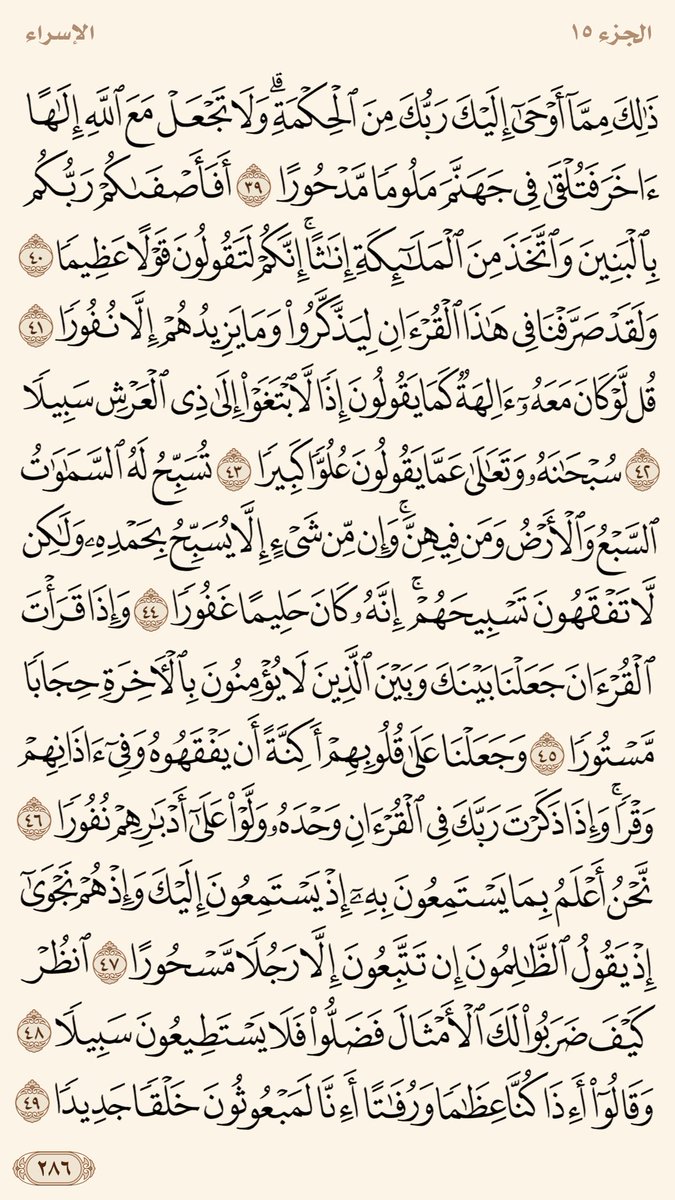 الجزء ١٥ الإسراء
ذَٰلِكَ مِمَّآ أَوۡحَىٰٓ إِلَيۡكَ رَبُّكَ مِنَ ٱلۡحِكۡمَةِۗ وَلَا تَجۡعَلۡ مَعَ ٱللَّهِ إِلَٰهًا
ءَاخَرَ فَتُلۡقَىٰ فِي جَهَنَّمَ مَلُومٗا مَّدۡحُورًا ٣٩ أَفَأَصۡفَىٰكُمۡ رَبُّكُم
بِٱلۡبَنِينَ وَٱتَّخَذَ مِنَ ٱلۡمَلَٰٓئِكَةِ إِنَٰثًاۚ إِنَّكُمۡ لَتَقُولُونَ قَوۡلًا عَظِيمٗا ٤٠
وَلَقَدۡ صَرَّفۡنَا فِي هَٰذَا ٱلۡقُرۡءَانِ لِيَذَّكَّرُواْ وَمَا يَزِيدُهُمۡ إِلَّا نُفُورٗا ٤١
قُل لَّوۡ كَانَ مَعَهُۥٓ ءَالِهَةٞ كَمَا يَقُولُونَ إِذٗا لَّٱبۡتَغَوۡاْ إِلَىٰ ذِي ٱلۡعَرۡشِ سَبِيلٗا
٤٢ سُبۡحَٰنَهُۥ وَتَعَٰلَىٰ عَمَّا يَقُولُونَ عُلُوّٗا كَبِيرٗا ٤٣ تُسَبِّحُ لَهُ ٱلسَّمَٰوَٰتُ
ٱلسَّبۡعُ وَٱلۡأَرۡضُ وَمَن فِيهِنَّۚ وَإِن مِّن شَيۡءٍ إِلَّا يُسَبِّحُ بِحَمۡدِهِۦ وَلَٰكِن
لَّا تَفۡقَهُونَ تَسۡبِيحَهُمۡۚ إِنَّهُۥ كَانَ حَلِيمًا غَفُورٗا ٤٤ وَإِذَا قَرَأۡتَ
ٱلۡقُرۡءَانَ جَعَلۡنَا بَيۡنَكَ وَبَيۡنَ ٱلَّذِينَ لَا يُؤۡمِنُونَ بِٱلۡأٓخِرَةِ حِجَابٗا
مَّسۡتُورٗا ٤٥ وَجَعَلۡنَا عَلَىٰ قُلُوبِهِمۡ أَكِنَّةً أَن يَفۡقَهُوهُ وَفِيٓ ءَاذَانِهِمۡ
وَقۡرٗاۚ وَإِذَا ذَكَرۡتَ رَبَّكَ فِي ٱلۡقُرۡءَانِ وَحۡدَهُۥ وَلَّوۡاْ عَلَىٰٓ أَدۡبَٰرِهِمۡ نُفُورٗا ٤٦
نَّحۡنُ أَعۡلَمُ بِمَا يَسۡتَمِعُونَ بِهِۦٓ إِذۡ يَسۡتَمِعُونَ إِلَيۡكَ وَإِذۡ هُمۡ نَجۡوَىٰٓ
إِذۡ يَقُولُ ٱلظَّٰلِمُونَ إِن تَتَّبِعُونَ إِلَّا رَجُلٗا مَّسۡحُورًا ٤٧ ٱنظُرۡ
كَيۡفَ ضَرَبُواْ لَكَ ٱلۡأَمۡثَالَ فَضَلُّواْ فَلَا يَسۡتَطِيعُونَ سَبِيلٗا ٤٨
وَقَالُوٓاْ أَءِذَا كُنَّا عِظَٰمٗا وَرُفَٰتًا أَءِنَّا لَمَبۡعُوثُونَ خَلۡقٗا جَدِيدٗا ٤٩
٢٨٦